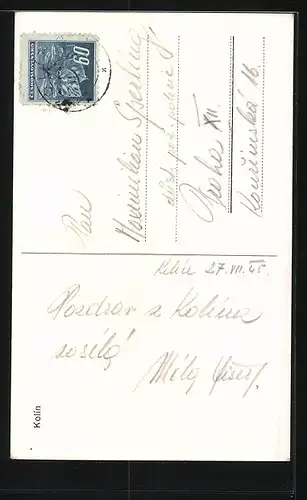 ČESKOSLOVENSKO
60
Pan
Maxmilian Sperling
Praha XII.
Kouřimská 16
Kolín 27. VII. 45.
Pozdrav z Kolína
zasílá
Kolín